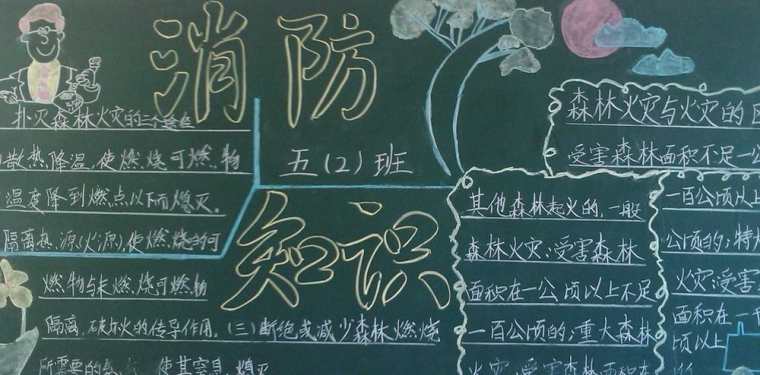 消防
知识
五(2)班
扑灭森林火灾的三个途径
散热降温,使燃烧可燃物
温度降到燃点以下而熄灭。
隔离热源(火源),使燃烧的可
燃物与未燃烧可燃物
隔离,破坏火的传导作用。(三)断绝或减少森林燃烧
所需要的 使其窒息 熄灭
森林火灾与火灾的区
受害森林面积不足一公
其他森林起火的,一般
森林火灾:受害森林
面积在一公顷以上不足
一百公顷的;重大森林
火灾:受害森林面积在
一百公顷以上
公顷的;特大
火灾:受害
面积在一
顷以上